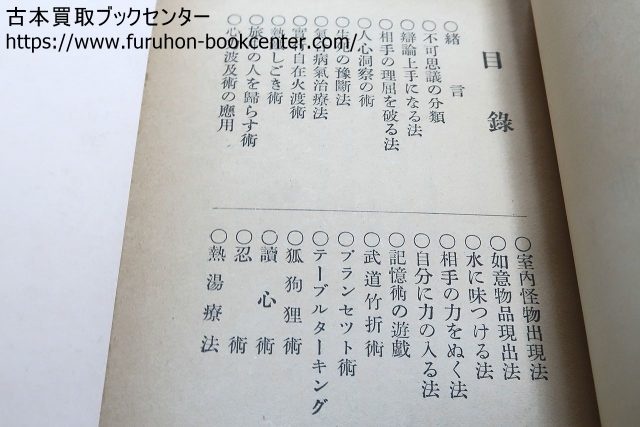 古本買取ブックセンター
https://www.furuhon-bookcenter.com/
目錄
○緒言
○不可思議の分類
○辯論上手になる法
○相手の理屈を破る法
○人心洞察の術
の豫斷法
病氣治療法
自在火渡術
しごき術
の人を歸らす術
波及術の應用
○室內怪物出現法
○如意物品現出法
○水に味つける法
○相手の力をぬく法
○自分に力の入る法
○記憶術の遊戯
○武道竹折術
○プランセツト術
○テーブルターキング
○狐狗狸術
○讀心術
○忍術
○熱湯療法